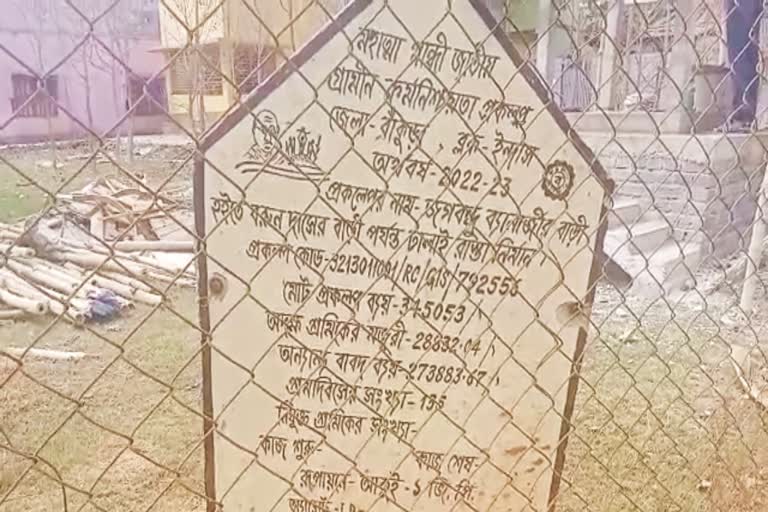 মহাত্মা গান্ধী জাতীয়
গ্রামীন - কর্মনিশ্চয়তা প্রকল্প
জেলা - বাঁকুড়া , ব্লক - ইন্দাস
অর্থবর্ষ - 2022-23
প্রকল্পের নাম - জগবন্ধু ব্যানার্জীর বাড়ী
হইতে বরুন দাসের বাড়ী পর্যন্ত ঢালাই রাস্তা নির্মান
প্রকল্প কোড - 3213011001/RC/GIS/792556
মোট প্রকল্প ব্যয় - 345053/
অদক্ষ শ্রমিকের মজুরী - 28832.04/
অন্যান্য বাবদ ব্যয় - 273883.67/
শ্রমদিবসের সংখ্যা - 136
নিযুক্ত শ্রমিকের সংখ্যা -
কাজ শুরু - কাজ শেষ -
রূপায়নে - আকুই - ১ জি. পি.